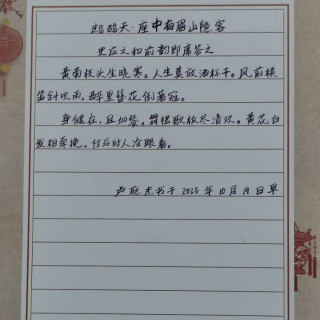 鹧鸪天·座中有眉山隐客
史应之和前韵即席答之
黄菊枝头生晓寒。人生莫放酒杯干。风前横
笛斜吹雨，醉里簪花倒著冠。
身健在，且加餐。舞裙歌板尽清欢。黄花白
发相牵挽，付与时人冷眼看。
书于2025年10月19日早